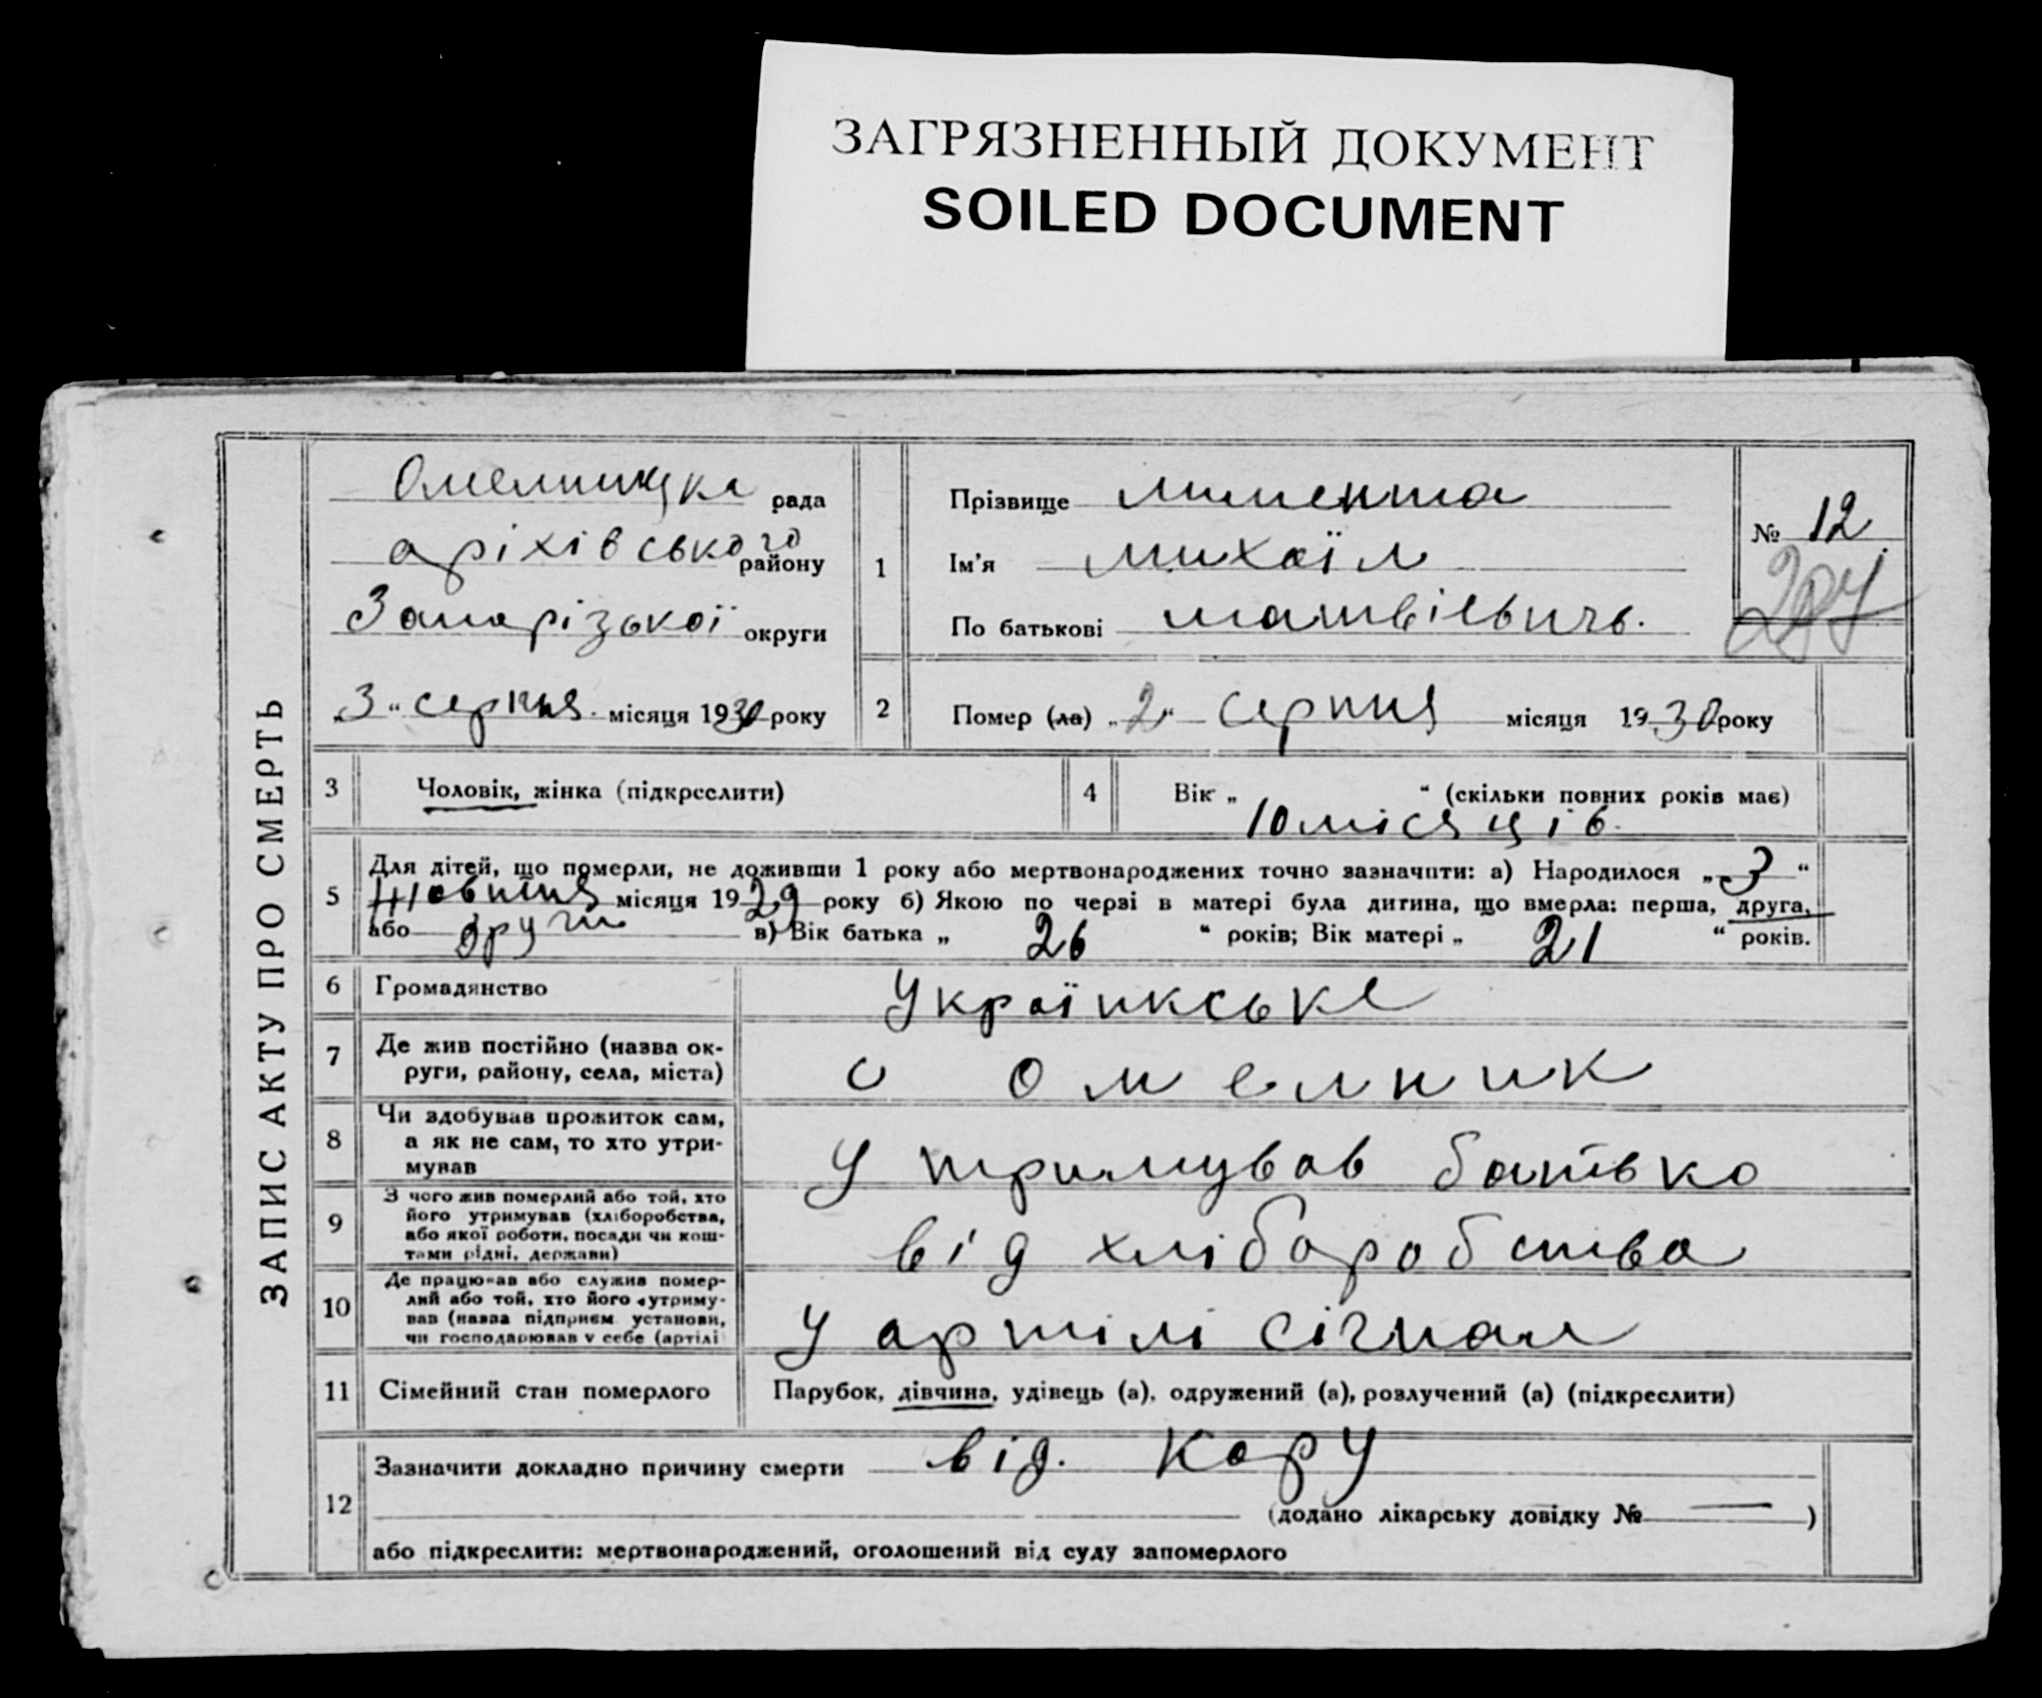 ЗАГРЯЗНЕННЫЙ ДОКУМЕНТ
SOILED DOCUMENT
ЗАПИС АКТУ ПРО СМЕРТЬ
Омельницка рада
аріхівського району
Запарізької округи
„3“ серпня місяця 1930 року
1
Прізвище
Ім'я михаїл
По батькові матвієвичь.
№ 12
2
Помер (ла) „2“ серпня місяця 1930 року
3 Чоловік, жінка (підкреслити)
4 Вік „ “ (скільки повних років має)
10 місяців.
5
Для дітей, що померли, не доживши 1 року або мертвонароджених точно зазначити: а) Народилося „3“
жовтня місяця 1929 року б) Якою по черзі в матері була дитина, що вмерла: перша, друга,
або в) Вік батька „ 26 “ років; Вік матері „ 21 “ років.
6 Громадянство українське
7 Де жив постійно (назва ок-
руги, району, села, міста)
с Омелник
8 Чи здобував прожиток сам,
а як не сам, то хто утри-
мував
утримував батько
9 З чого жив померлий або той, хто
його утримував (хліборобства,
або якої роботи, посади чи кош-
тами рідні, держави)
від хліборобства
10 Де працював або служив помер-
лий або той, хто його утриму-
вав (назва підприєм. установи,
чи господарював у себе (артілі
у артілі сігнал
11 Сімейний стан померлого
Парубок, дівчина, удівець (а), одружений (а), розлучений (а) (підкреслити)
12
Зазначити докладно причину смерти від. кору
(додано лікарську довідку № — )
або підкреслити: мертвонароджений, оголошений від суду запомерлого